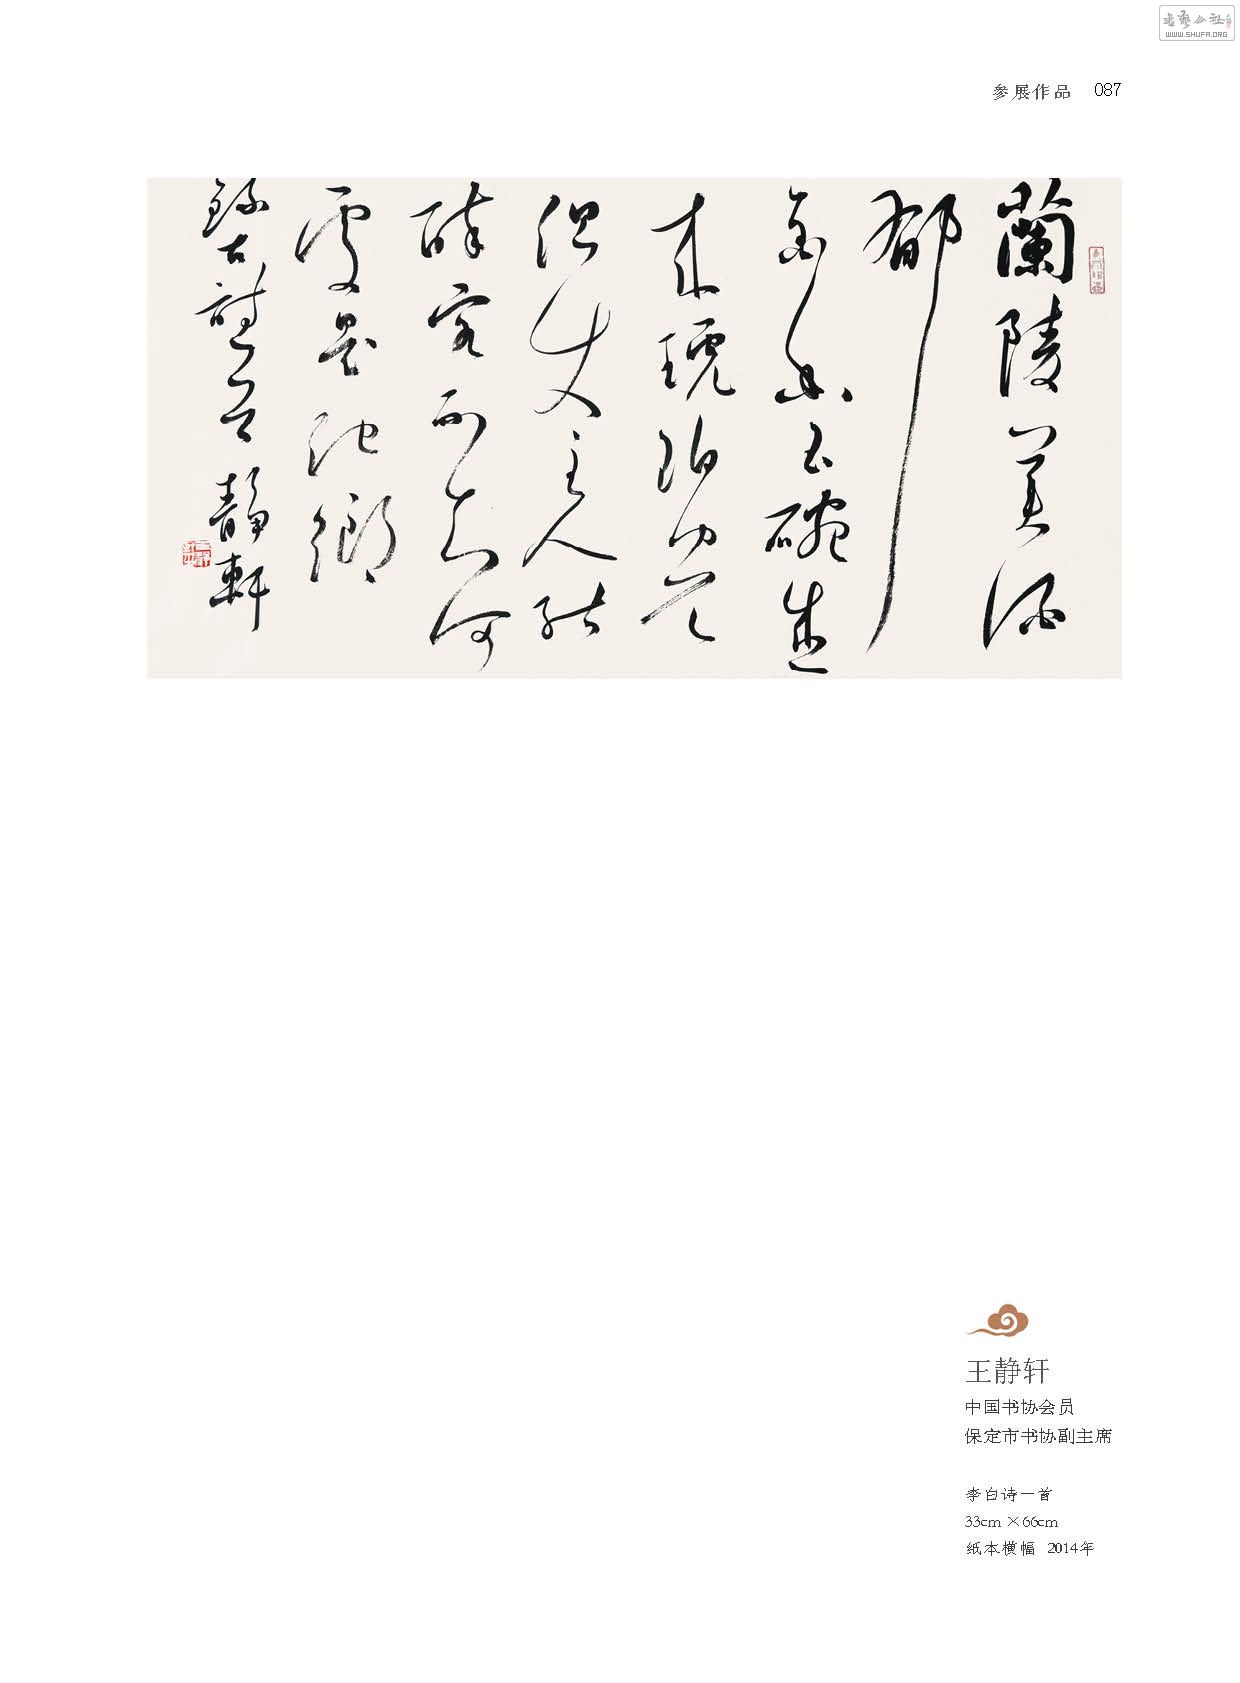 书艺公社
WWW.SHUFA.ORG
参展作品 087
蘭陵美酒
郁
金香玉碗盛
来琥珀光
但使主人能
醉客不知何
處是他鄉
錄古詩一首 靜軒
王静轩
中国书协会员
保定市书协副主席
李白诗一首
33cm×66cm
纸本横幅 2014年